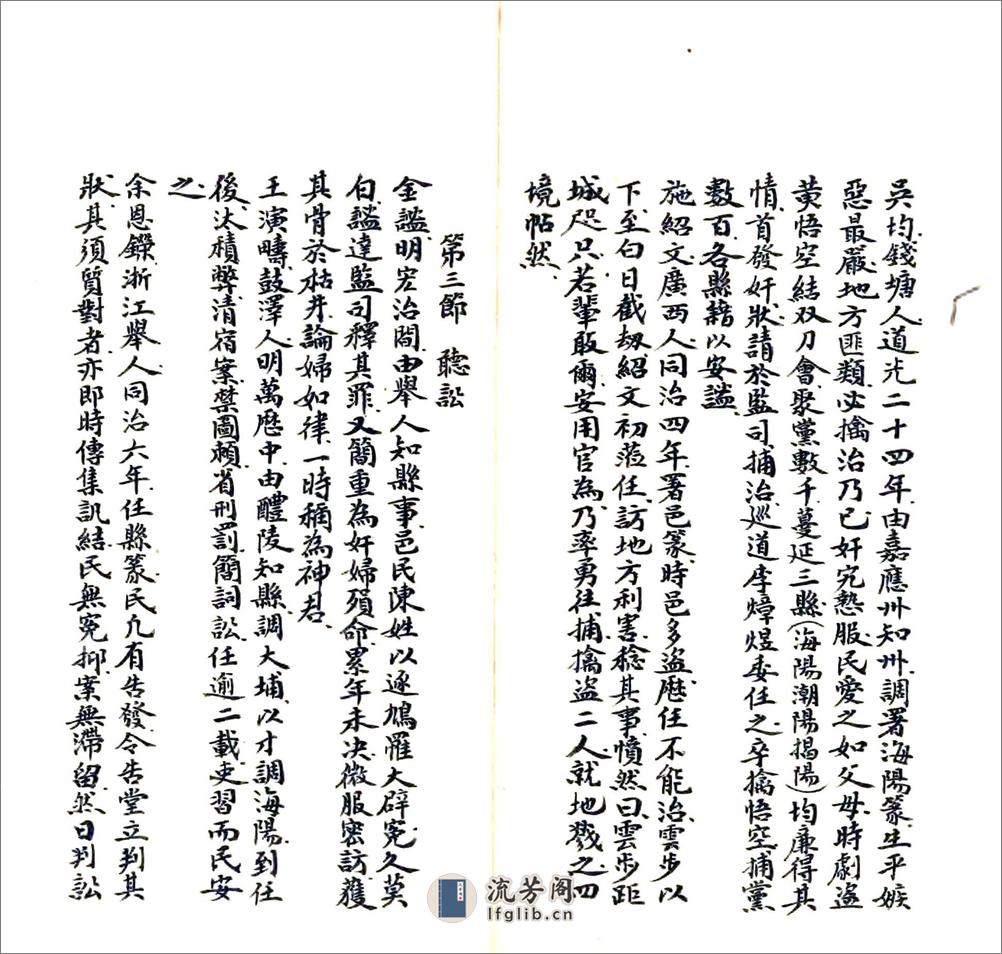 吳均錢塘人道光二十四年由嘉應州知州調署海陽篆生平嫉
惡最嚴地方匪類必擒治乃已奸宄慹服民愛之如父母時劇盜
黄悟空結双刀會聚黨數千蔓延三縣(海陽潮陽揭陽)均廉得其
情首發奸狀請於監司捕治巡道李煒煜委任之卒擒悟空捕黨
數百各縣藉以安謐
施紹文廣西人同治四年署邑篆時邑多盜歷任不能治雲步以
下至白日截劫紹文初蒞任訪地方利害稔其事憤然曰雲步距
城咫只若輩敢爾安用官為乃率勇往捕擒盜二人就地戮之四
境帖然
第三節 聽訟
金謐明宏治間由舉人知縣事邑民陳姓以逐鳩罹大辟寃久莫
白謐達監司釋其罪又簡重為奸婦殞命累年未决微服密訪獲
其骨於枯井論婦如律一時稱為神君
王演疇彭澤人明萬歷中由醴陵知縣調大埔以才調海陽到任
後汰積弊清宿案禁圖頼省刑罰簡詞訟任逾二載吏習而民安
之
余恩鑅浙江舉人同治六年任縣篆民凢有告發令告堂立判其
狀其須質對者亦即時傳集訊結民無寃抑案無滯留然日判訟
流芳阁
lfglib.cn